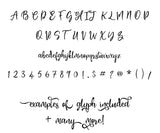 A B C D E F G H I J K L M N O P
Q R S T U V W X Y Z
a b c d e f g h i j k l m n o p q r s t u v w x y z
1 2 3 4 5 6 7 8 9 0 ! . $ # ? @ * ( ) /
examples of glyph included
+ many more!